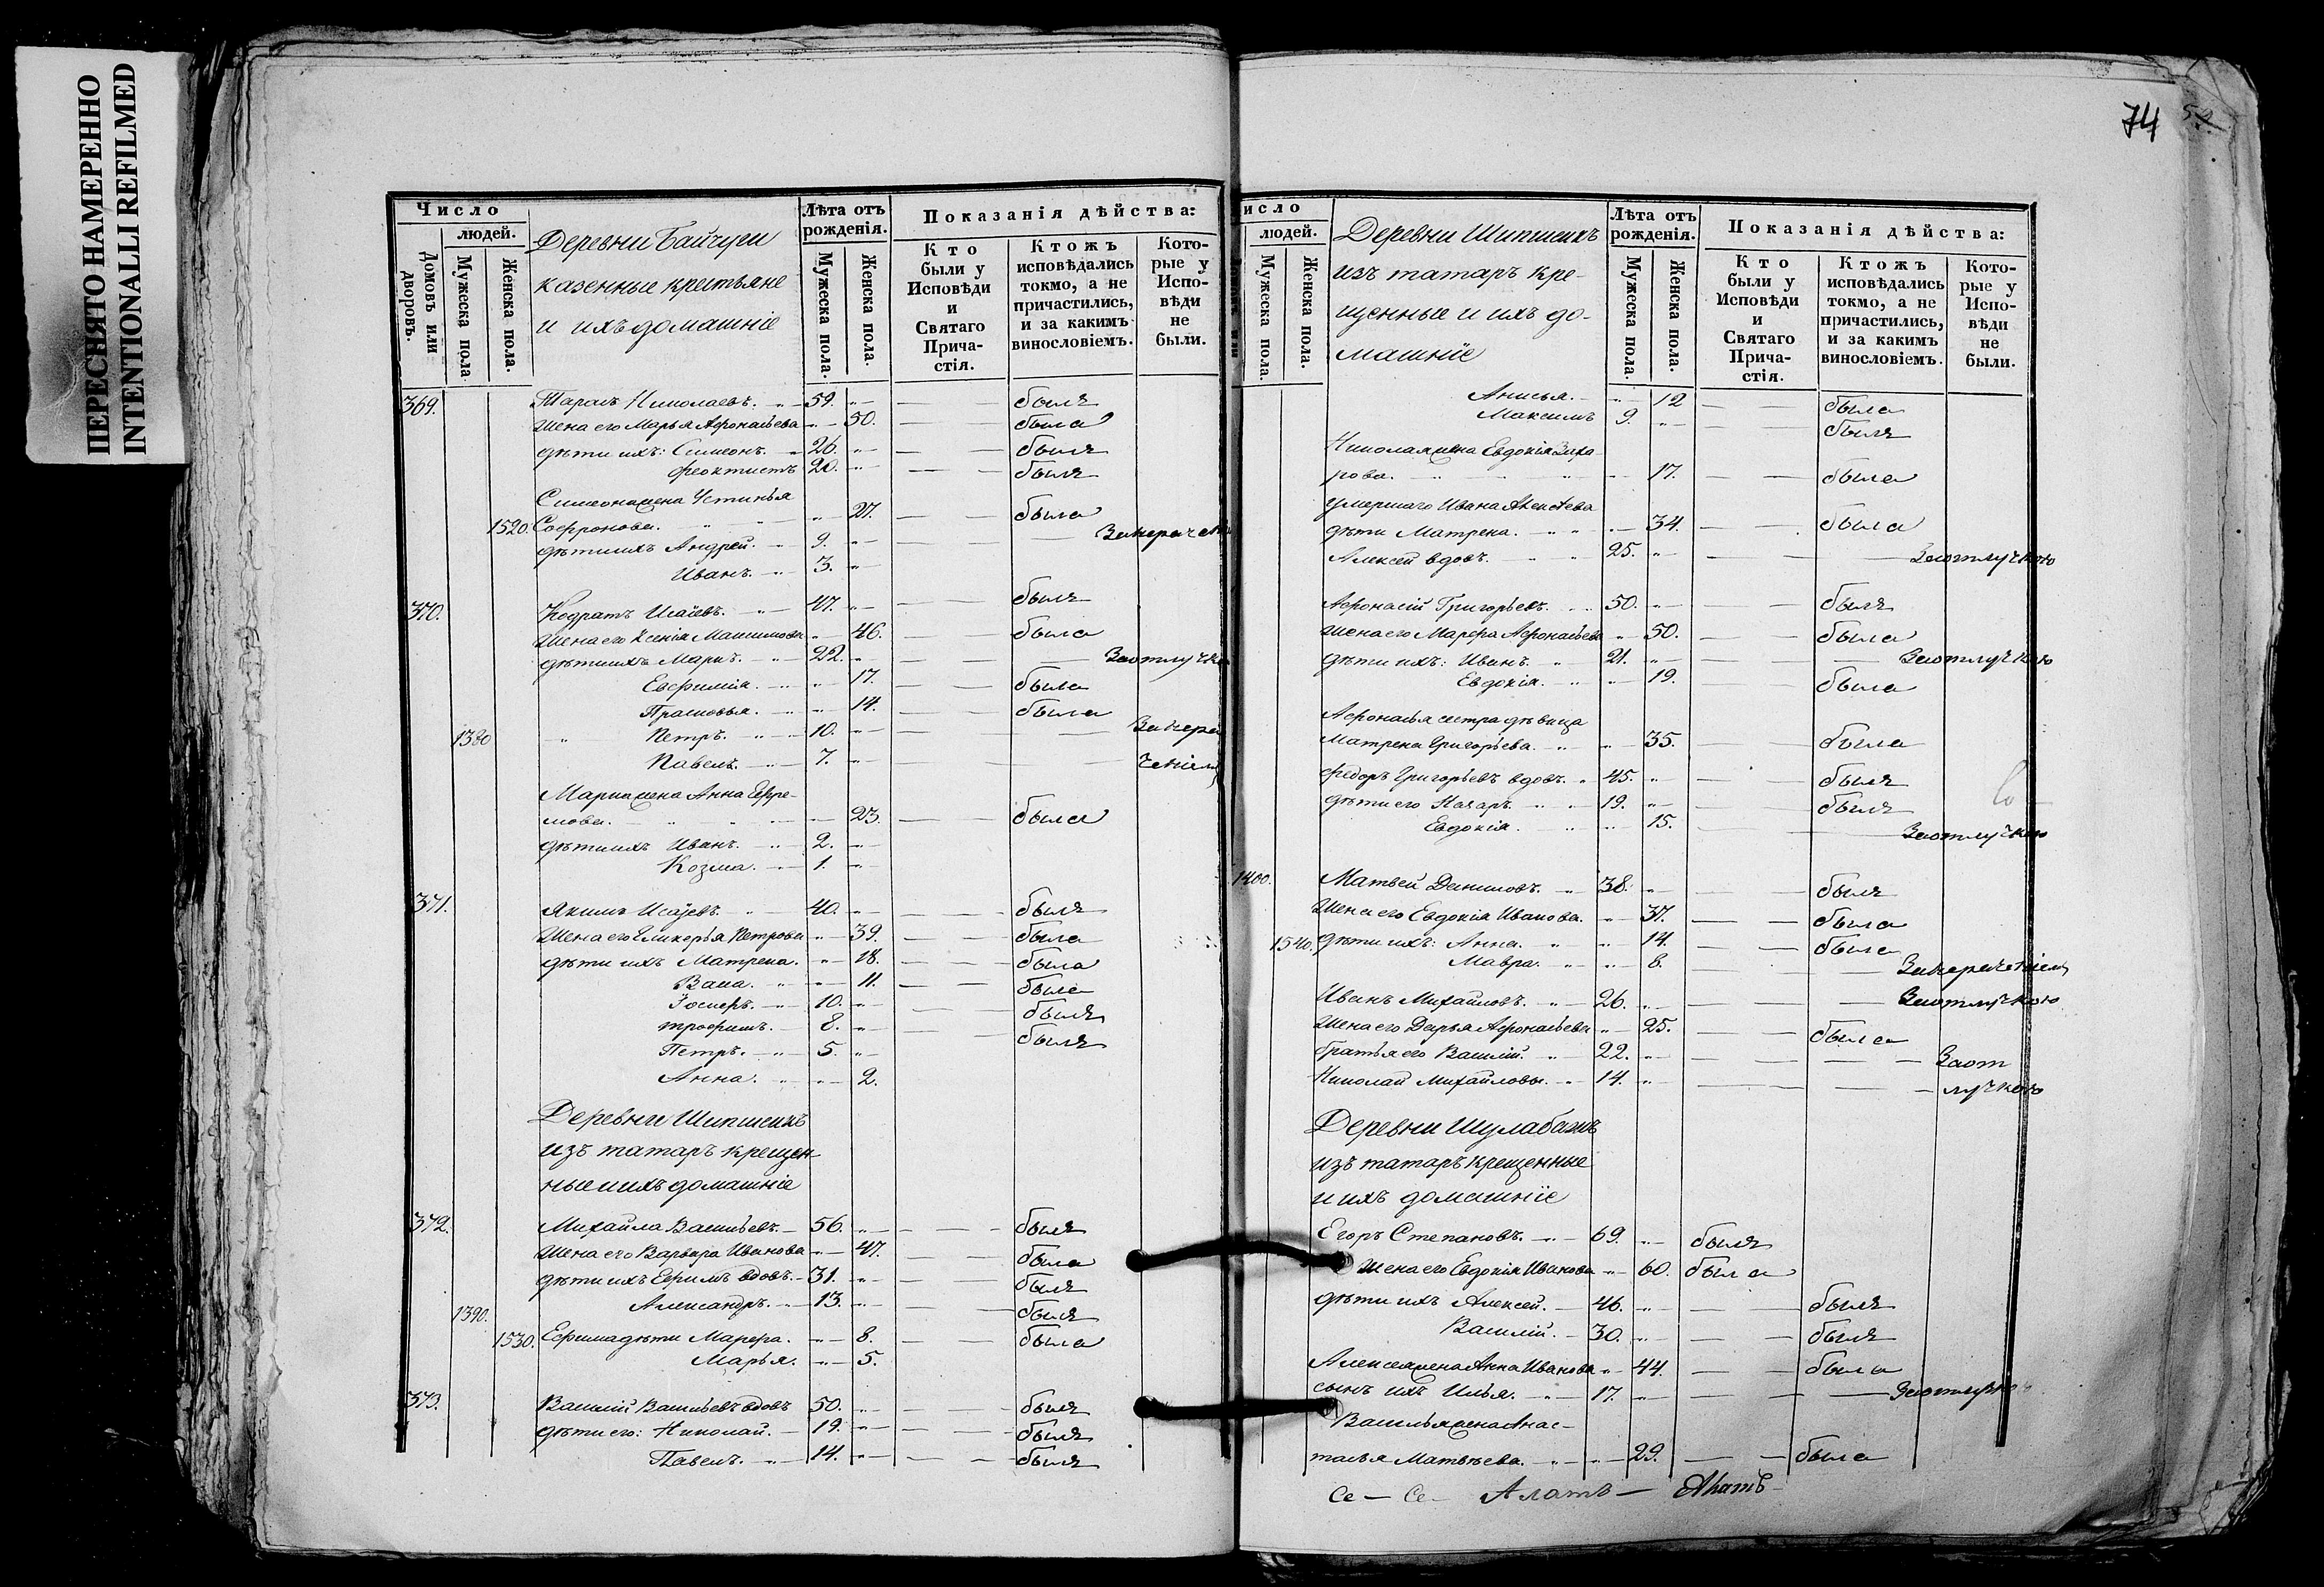 ПЕРЕСНЯТО НАМЕРЕННО
INTENTIONALLI REFILMED
Число
людей.
Домовъ или дворовъ.
Мужеска пола
Женска пола.
Деревни Байчуги
казенные крестьяне
и ихъ домашніе
Лѣта отъ рожденія.
Мужеска пола.
Женска пола.
Показанія дѣйства:
Кто были у Исповѣди и Святаго Причастія.
Ктожъ исповѣдались токмо, а не причастились, и за какимъ винословіемъ.
Которые у Исповѣди не были.
369. Тарасъ Николаевъ. 59. былъ
Жена его Марья Афонасьева 50. была
дѣти ихъ: Симеонъ. 26. былъ
Феоктистъ 20. былъ
Симеона жена Устинья
1520. Софронова. 27. была
дѣти ихъ Андрей. 9.
Иванъ. 3.
370. Кодратъ Исаевъ. 47. былъ
Жена его Ксенія Максимова 46. была
дѣти ихъ Маркъ. 22. За отлучкою
Евфимія. 17. была
Прасковья. 14. была
1380 Петръ. 10.
Павелъ. 7.
Марка жена Анна Ефре-
мова. 23. была
дѣти ихъ Иванъ. 2.
Козма. 1.
371. Якимъ Исаевъ. 40. былъ
Жена его Гликерья Петрова 39. была
дѣти ихъ Матрена. 18. была
Васа. 11. была
Іосифъ. 10. былъ
Трофимъ. 8. былъ
Петръ. 5.
Анна. 2.
Деревни Шипшикъ
изъ татаръ крещен-
ные и ихъ домашніе
372. Михайла Васильевъ. 56. былъ
Жена его Варвара Иванова 47. была
дѣти ихъ Ефимъ вдовъ. 31. былъ
1390. Александръ. 13. былъ
1530. Ефима дѣти Марфа. 8. была
Марья. 5.
373. Василій Васильевъ вдовъ 50. былъ
дѣти его: Николай. 19. былъ
Павелъ. 14. былъ
74
исло
людей.
Мужеска пола.
Женска пола.
Деревни Шипшикъ
изъ татаръ кре-
щенные и ихъ до-
машніе
Лѣта отъ рожденія.
Мужеска пола.
Женска пола.
Показанія дѣйства:
Кто были у Исповѣди и Святаго Причастія.
Ктожъ исповѣдались токмо, а не причастились, и за какимъ винословіемъ.
Которые у Исповѣди не были.
Анисья. 12 была
Максимъ 9. былъ
Николая жена Евдокія Заха-
рова. 17. была
умершаго Ивана Алексѣева
дѣти Матрена. 34. была
Алексѣй вдовъ. 25. За отлучкою
Афонасій Григорьевъ. 50. былъ
Жена его Марфа Афонасьева 50. была
дѣти ихъ: Иванъ. 21. За отлучкою
Евдокія. 19. была
Афонасья сестра дѣвица
Матрена Григорьева. 35. была
Федоръ Григорьевъ вдовъ. 45. былъ
дѣти его Назаръ. 19. былъ
Евдокія. 15. За отлучкою
1400. Матвей Даниловъ. 38. былъ
Жена его Евдокія Иванова. 37. была
1540. дѣти ихъ: Анна. 14. была
Мавра. 8.
Иванъ Михайловъ. 26. За отлучкою
Жена его Дарья Афонасьева 25. была
братья его Василій. 22. За от
Николай Михайловы. 14. лучкою
Деревни Шулабашъ
изъ татаръ крещенные
и ихъ домашніе
Егоръ Степановъ. 69. былъ
Жена его Евдокія Иванова 60. была
дѣти ихъ Алексѣй. 46. былъ
Василій. 30. былъ
Алексѣя жена Анна Иванова 44. была
сынъ ихъ Илья. 17. За отлучкою
Василья жена Анас-
тасья Матвѣева. 29. была